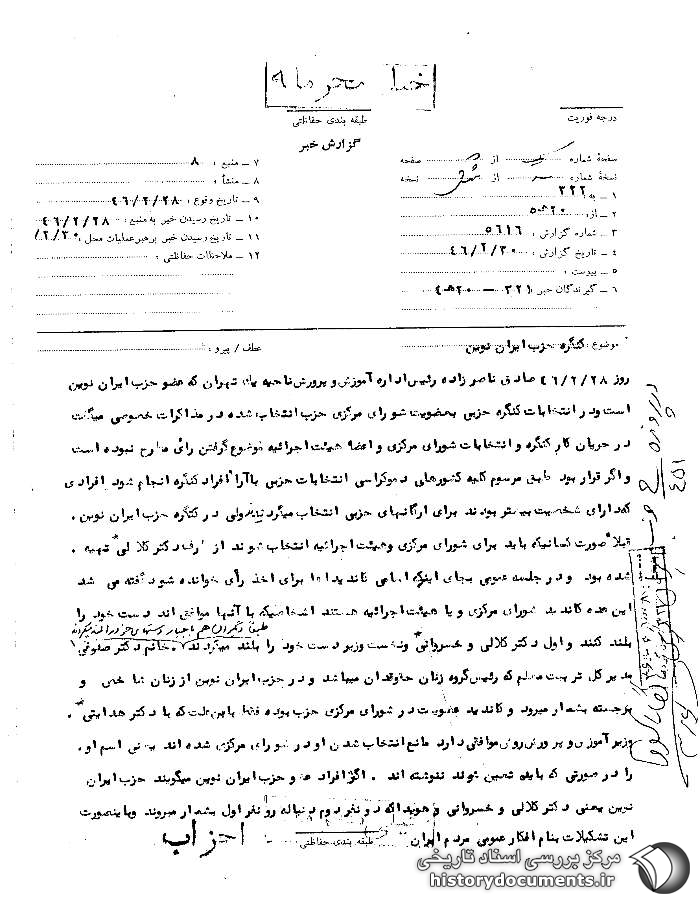 خیلی محرمانه
طبقه بندی حفاظتی
گزارش خبر
درجه فوریت
صفحهٔ شماره یک از صفحه
نسخهٔ شماره از شش نسخه
۱ – به: ۳۲۲
۲ – از: ۲۰ه‍۵
۳ – شماره گزارش: ۵۶۱۶
۴ – تاریخ گزارش: ۴۶/۲/۳۰
۵ – پیوست:
۶ – گیرندگان خبر: ۳۲۱ – ۲۰ه‍۴
۷ – منبع: ۸
۸ – منشأ:
۹ – تاریخ وقوع: ۴۶/۲/۲۸
۱۰ – تاریخ رسیدن خبر به منبع: ۴۶/۲/۲۸
۱۱ – تاریخ رسیدن خبر برهبر عملیات محل: /۲/۳۰
۱۲ – ملاحظات حفاظتی:
موضوع: کنگره حزب ایران نوین
عطف / پیرو:
روز ۴۶/۲/۲۸ صادق ناصرزاده رئیس اداره آموزش و پرورش ناحیه یک تهران که عضو حزب ایران نوین
است ودر انتخابات کنگره حزبی بعضویت شورای مرکزی حزب انتخاب شده در مذاکرات خصوصی میگفت
در جریان کار کنگره و انتخابات شورای مرکزی و اعضا هیئت اجرائیه موضوع گرفتن رأی مطرح نبوده است
و اگر قرار بود طبق مرسوم کلیه کشورهای دموکراسی انتخابات حزبی با آراء افراد کنگره انجام شود افرادی
که دارای شخصیت بیشتر بودند برای ارگانهای حزبی انتخاب میگردیدند ولی در کنگره حزب ایران نوین
قبلا صورت کسانیکه باید برای شورای مرکزی وهیئت اجرائیه انتخاب شوند از طرف دکتر کلالی تهیه
شده بود و در جلسه عمومی بجای اینکه اسامی کاندیداها برای اخذ رأی خوانده شود گفته می شد
این عده کاندید شورای مرکزی و یا هیئت اجرائیه هستند اشخاصیکه با آنها موافق اند دست خود را
بلند کنند و اول دکتر کلالی و خسروانی و نخست وزیر دست خود را بلند میکردند خانم دکتر صفوفی
طبعا دیگران هم باجبار دستهای خود را بلند میکردند
مدیر کل تربیت معلم که رئیس گروه زنان حقوقدان میباشد و در حزب ایران نوین از زنان شاخص و
برجسته بشمار میرود و کاندید عضویت در شورای مرکزی حزب بوده فقط باین علت که با دکتر هدایتی
وزیر آموزش و پرورش روش موافقی دارد مانع انتخاب شدن او در شورای مرکزی شده اند یعنی اسم او
را در صورتی که باید تعیین شوند ننوشته اند. اکثر افراد عضو حزب ایران نوین میگویند حزب ایران
نوین یعنی دکتر کلالی و خسروانی و هویدا که دو نفر دوم دنباله رو نفر اول بشمار میروند و باینصورت
این تشکیلات بنام افکار عمومی مردم ایران
طبقه بندی حفاظتی
احزاب
مرکز بررسی اسناد تاریخی
historydocuments.ir